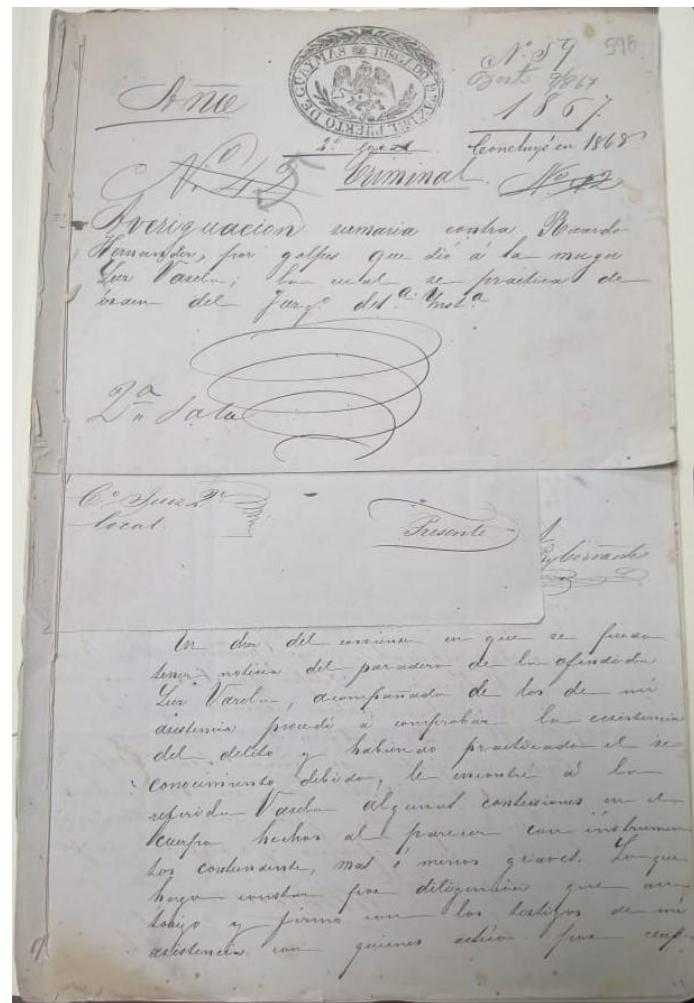 JUSGADO 1º DE PAZ DEL PUERTO DE GUAYMAS
Nº 59 598
Año
1867.
Concluyó en 1868
Nº 42 Criminal. No. 42
Averiguacion sumaria contra Ricardo
Hernandez, por golpes que dió á la muger
Luz Varela; la cual se practica de
órden del Juzgº de 1ª Instª
2ª Sala
Cº Juez 2º
local.
Presente
En dies del corriente en que se pudo
tener noticia del paradero de la ofendida
Luz Varela, acompañado de los de mi
asistencia procedí á comprobar la ecsistencia
del delito y habiendo practicado el re
conocimiento debido, le encontré á la
referida Varela algunas contusiones en el
cuerpo hechas al parecer con instrumen
tos contundente, mas ó menos graves. Lo que
hago constar por diligencia que au
torizo y firmo con los testigos de mi
asistencia con quienes actúo por